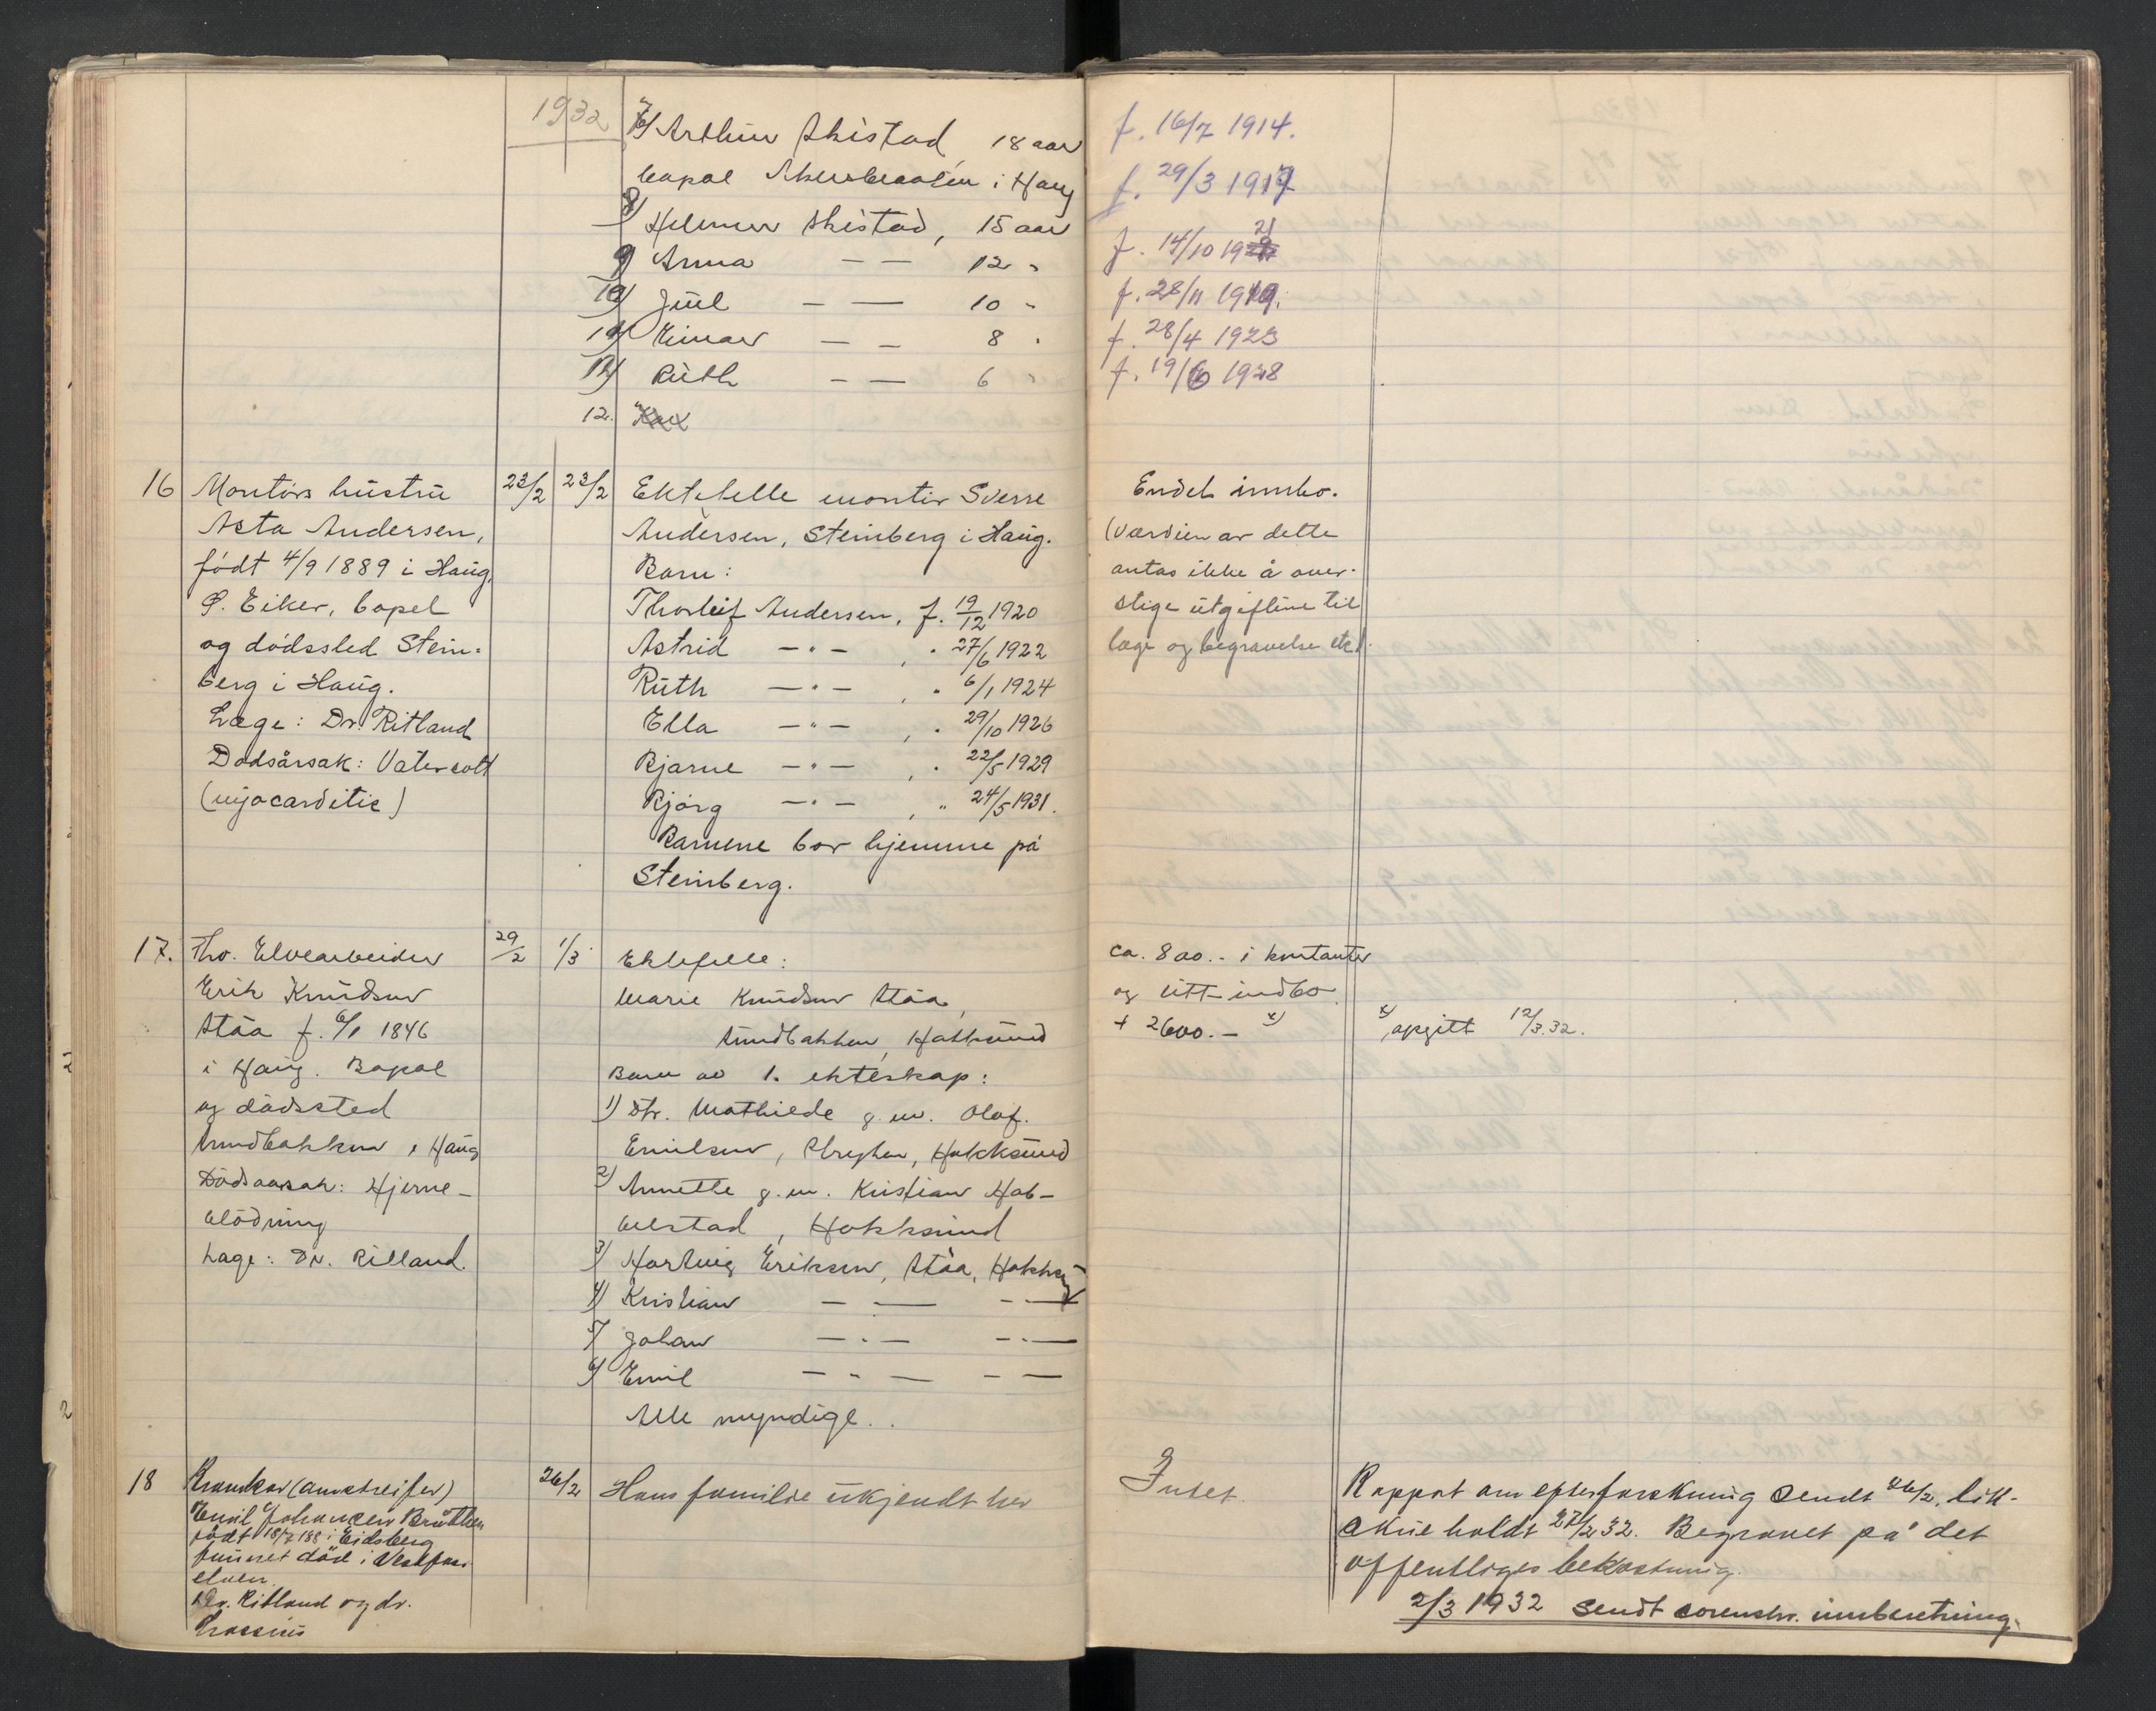 1932
7) Arthur Skistad 18 aar
bopæl i Haug
8) Helmer Skistad, 15 aar
9) Anna — — 12 "
10) Juul — — 10 -
11) Einar — — 8 "
12) Ruth — — 6 "
12. Kar
f. 16/7 1914.
f. 29/3 1917
f. 14/10 1921
f. 28/11 1919.
f. 28/4 1923
f. 19/6 1928
16 Montørs hustru
Asta Andersen,
født 4/9 1889 i Haug,
Ø. Eiker, bopel
og dødssted Stein-
berg i Haug.
Læge: Dr. Ritland
Dødsårsak: Vatersott
(myocarditis)
23/2 23/2
Ektefelle montør Sverre
Andersen, Steinberg i Haug.
Barn:
Thorleif Andersen, f. 19/12 1920
Astrid — " — , " 27/6 1922
Ruth — " — , " 6/1 1924
Ella — " — , " 29/10 1926
Bjarne — " — , " 22/5 1929
Bjørg — " — , " 24/5 1931.
Barnene bor hjemme på
Steinberg.
Endel innbo.
(Værdien av dette
antas ikke å over-
stige utgiftene til
læge og begravelse etc).
17. Fhv. Elvearbeider
Erik Knudsen
Ståa f. 6/1 1846
i Haug. Bopæl
og dødssted
Sundbakken i Haug
Dødsaarsak: Hjerne-
blødning
Læge: Dr. Ritland.
29/2 1/3
Ektefelle:
Marie Knudsen Ståa,
Sundbakken, Hokksund
Barn av 1. ekteskap:
1) Dtr. Mathilde g.m. Olaf.
Emilsen, Hokksund
2) Annette g.m. Kristian Hob-
belstad, Hokksund
3) Hartvig Eriksen, Ståa, Hokksund
4) Kristian — " — — " —
5) Johan — " — — " —
6) Emil — " — — " —
Alle myndige.
ca. 800.- i kontanter
og litt indbo.
+ 2600.- x)
x) opgitt 12/3.32.
18 (omstreifer)
Emil Johansen Bråthen
født 18/7 188 i Eidsberg
funnet død i Vestfos-
elven.
Dr. Ritland og dr.
26/2
Hans familie ukjendt her
Intet
Rapport om efterforskning sendt 26/2, lik-
skue holdt 27/2 32. Begravet på det
offentliges bekostning.
2/3 1932 sendt sorenskr. innberetning.